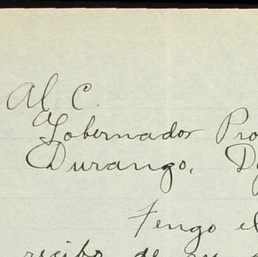 Al C.
Gobernador Pro
Durango, D
Tengo el
recibo de su